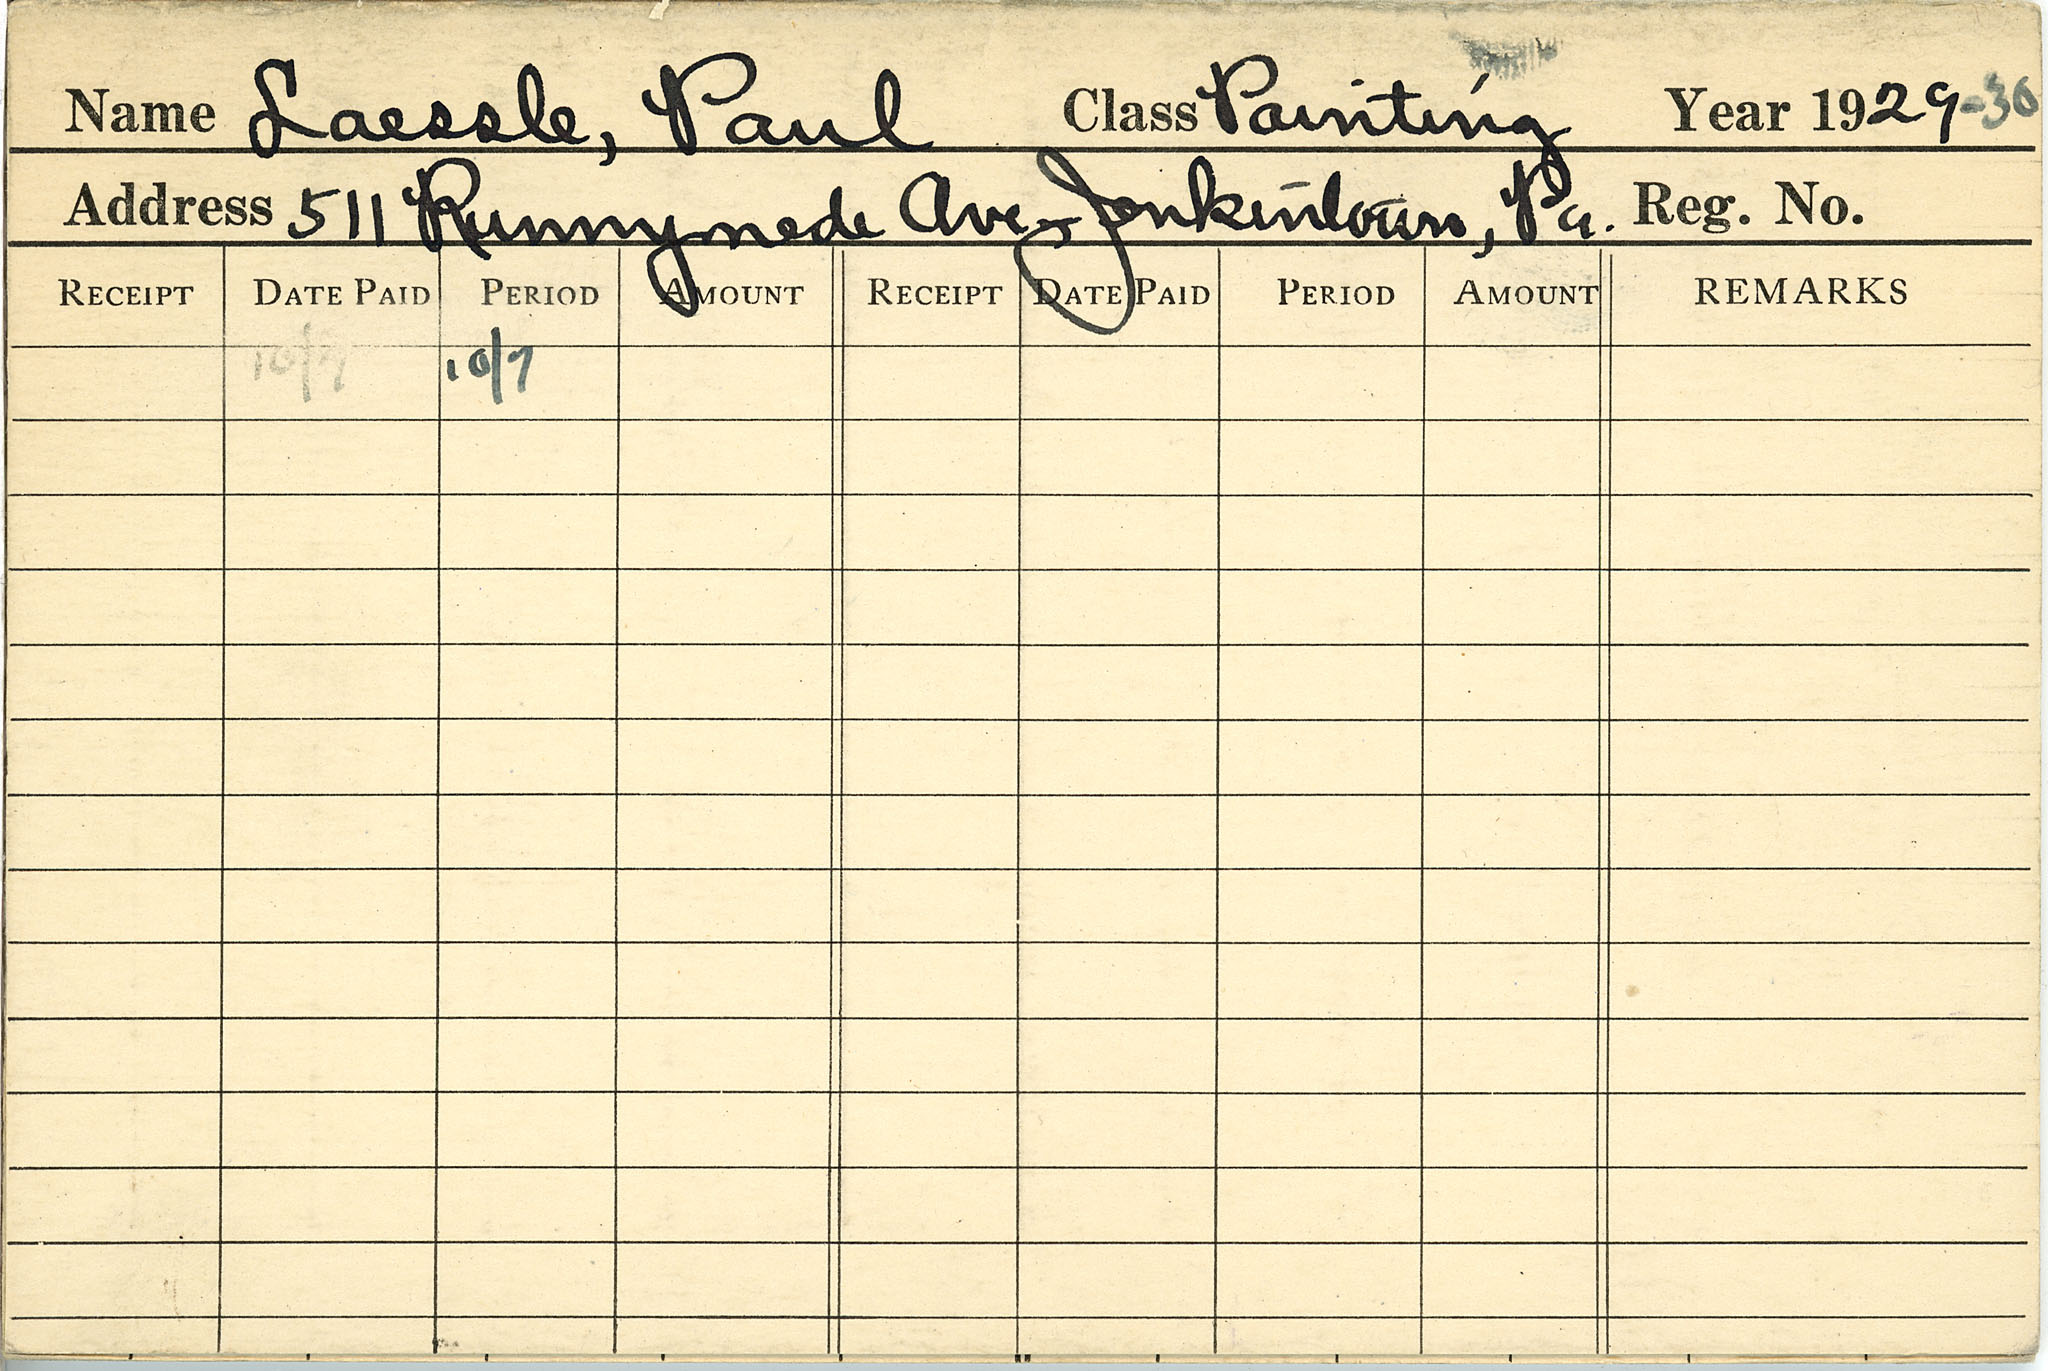 Name Laessle, Paul Class Painting Year 1929-30
Address 511 Runnymede Ave., Jenkintown, Pa. Reg. No.
RECEIPT DATE PAID PERIOD AMOUNT RECEIPT DATE PAID PERIOD AMOUNT REMARKS
10/7 10/7